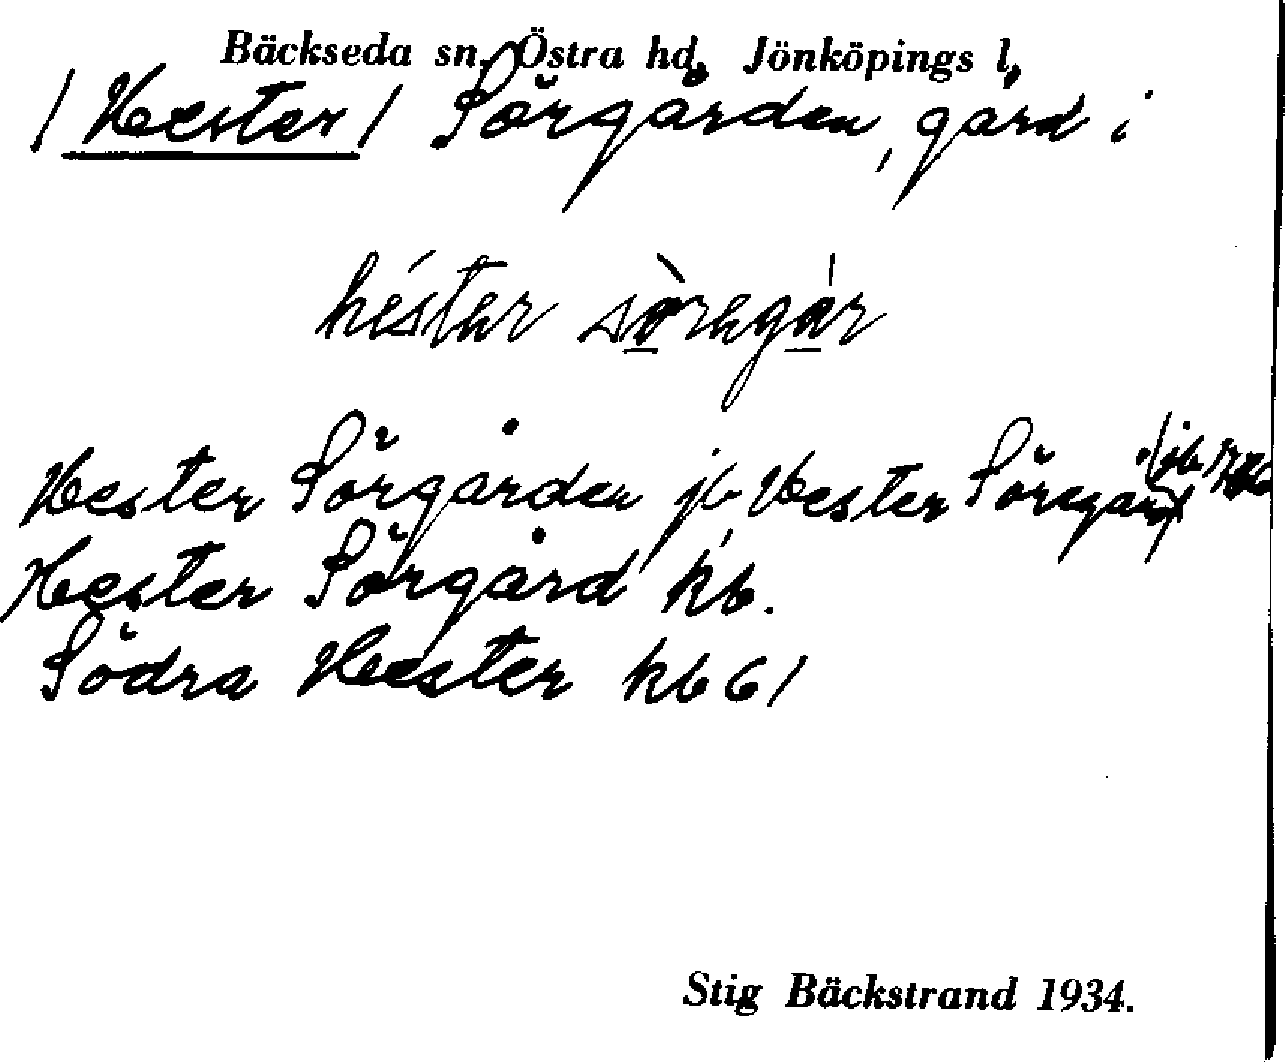 Bäckseda sn, Östra hd, Jönköpings l,
/ Hester / Sörgården, gård i
héstar sòragár
Hester Sörgården jb Hester Söregård (jb
Hester Sörgård kb.
Södra Hester kb 61
Stig Bäckstrand 1934.